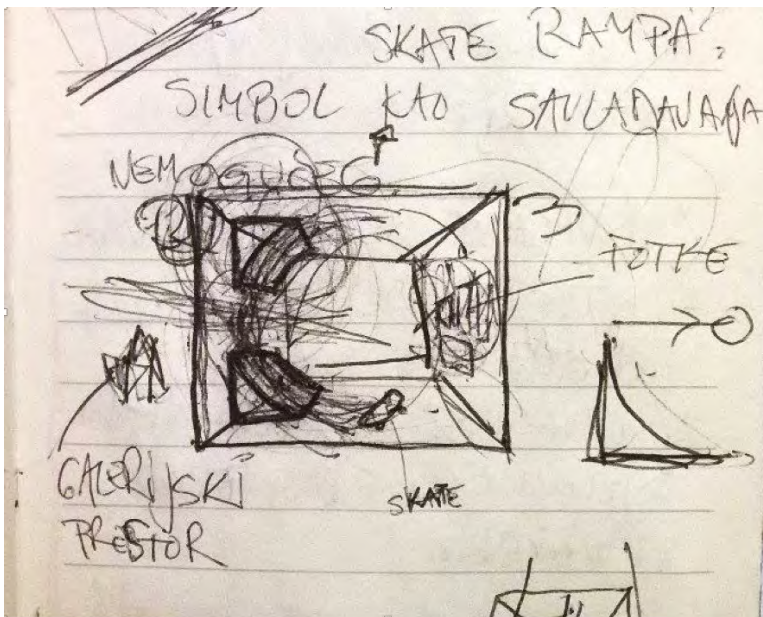 SKATE RAMPA?
SIMBOL KAO SAVLADAVANJA
NEMOGUĆEG
FOTKE
GALERIJSKI
PROSTOR
SKATE